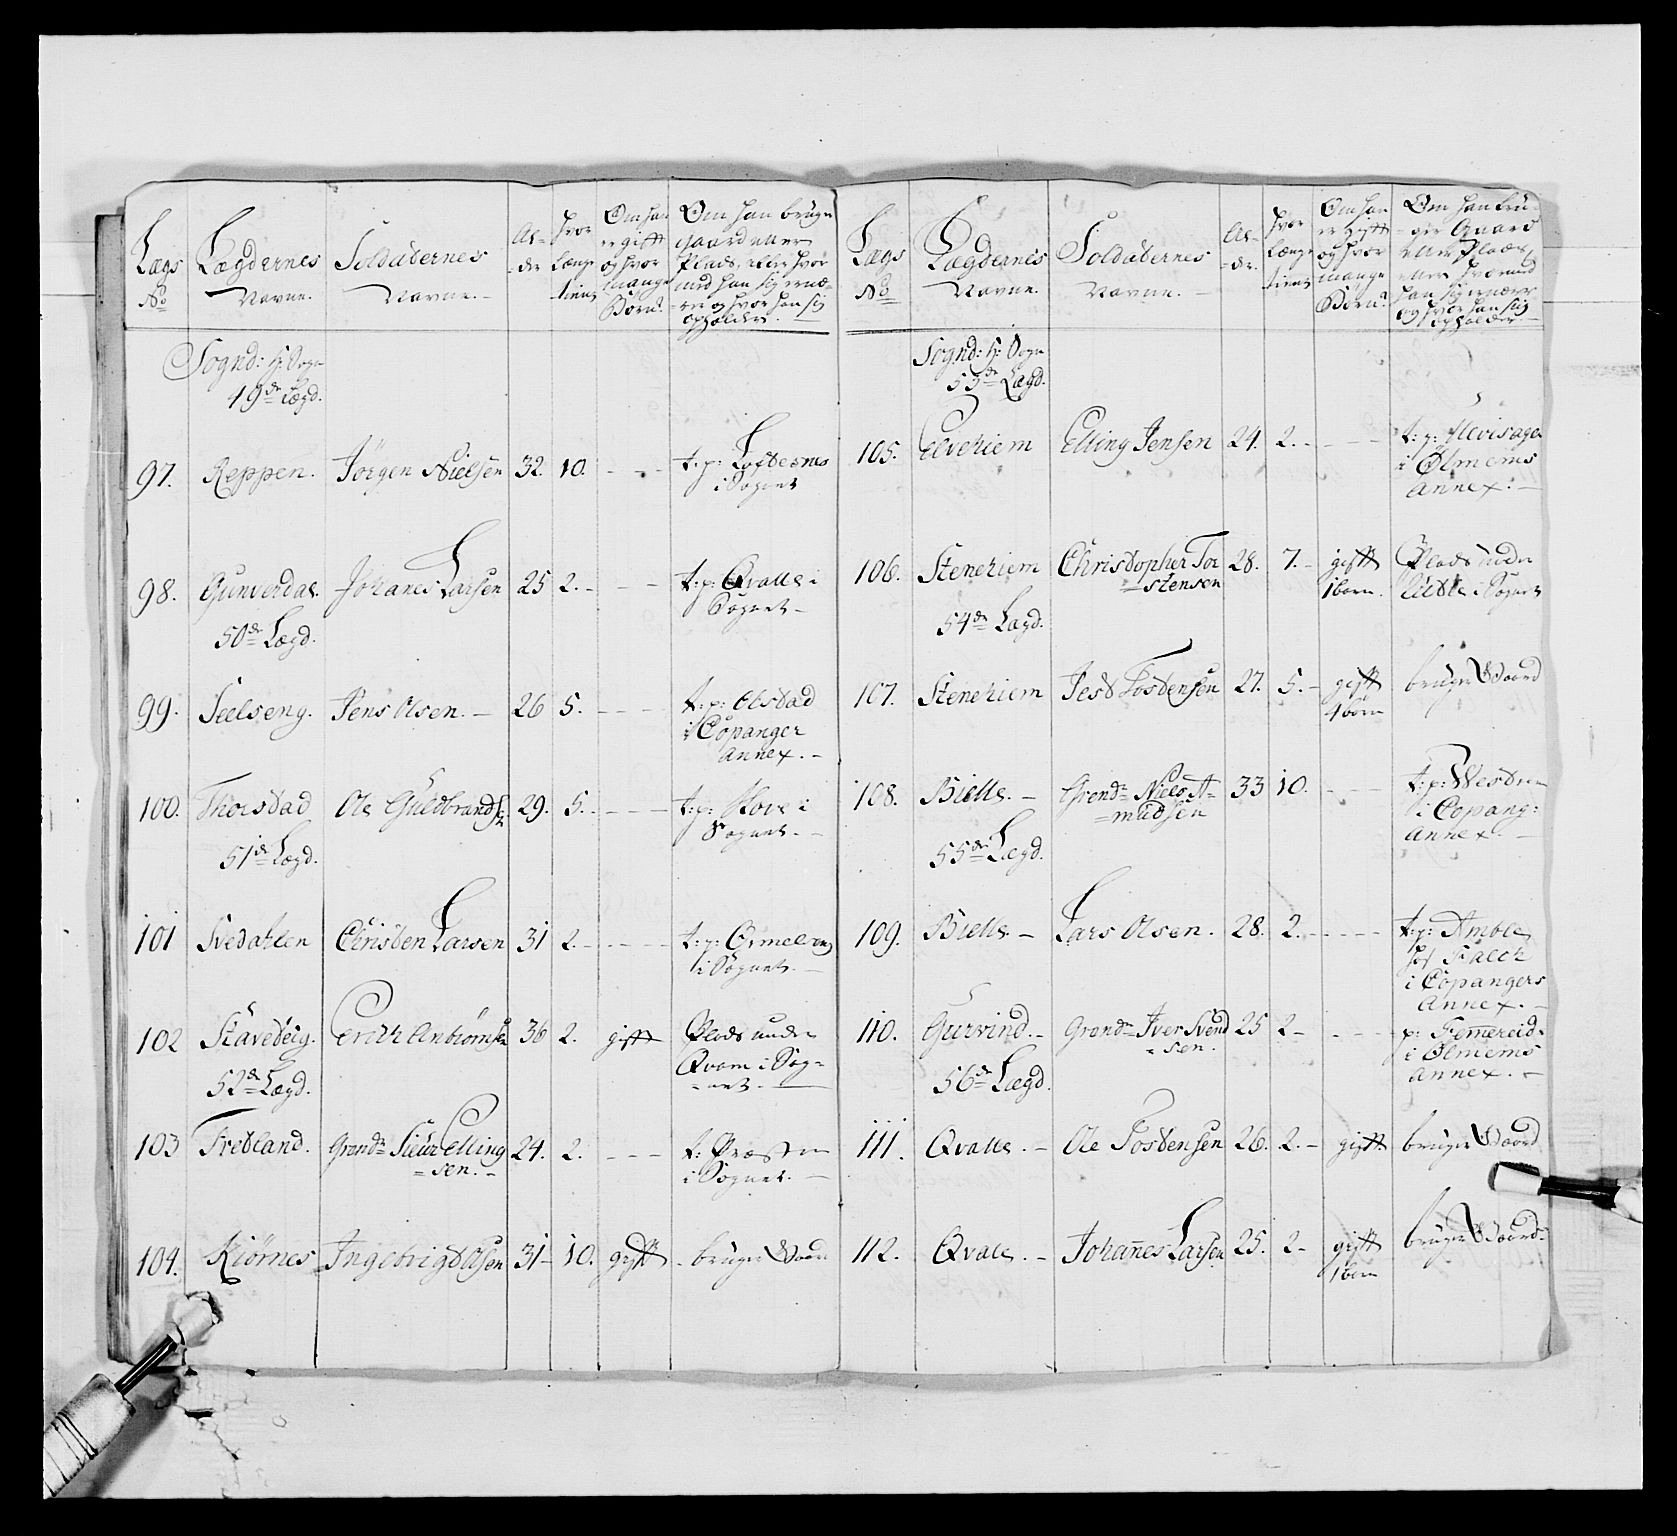 Lægs
No
Lægdernes
Navne.
Soldaternes
Navne. –
Al-
-der
hvor
længe
tient
Om han
er gift
og hvor
mange
Børn?
Om han bruger
gaard eller
Plads, eller hvor
med han sig ernæ-
-rer og hvor han sig
opholder.
Sognd: H: Sogn
49de Lægd.
97. Reppen. Jörgen Nielsen 32. 10. - - - t: p: Loftesnes
i Sognet
98. Gunverdal. Johanes Larsen 25 2. - - - t: p: Qvalle i
Sognet –
50de Lægd.
99. Seelseng. Jens Olsen. – 26 5. - - - t: p: Olstad
i Copanger
Annex. –
100. Thorstad Ole Guldbrands: 29. 5. - - - t: p: Hove i
Sognet. –
51de Lægd.
101 Svedahlen Christen Larsen 31 2. - - - t: p: Ormelreng
i Sognet. –
102 Stavedeig. Erich Anbiörnsen 36 2. gift Plads under
Qvam i Sog-
-net.
52de Lægd.
103 Fretland. Grend: Siur Elling
-sen. – 24. 2. - - - t: Præsten
i Sognet. –
104. Kiörnes Ingebrigt Olsen 31 – 10. gift - bruger Gaard
Lægs
No
Lægdernes
Navne.
Soldaternes
Navne. –
Al-
-der.
hvor
længe
tient
Om han
er gift
og hvor
mange
Børn?
Om han bru-
ger Gaard
eller Plads,
eller hvormed
han sig ernærer
og hvor han sig
opholder. –
Sognd: H: Sogn
53de Lægd.
105. Elvehiem Elling Jensen 24. 2. - - - t: p:
i Ølmems
Annex. –
106. Stenehiem Christopher Tor
-stensen 28. 7. – gift
1 barn. Plads under
i Sognet
54de Lægd.
107. Stenehiem Jest Tostensen 27. 5. – gift
4 börn bruger Gaard
108. Bielle. – Grend: Niels A-
-mudsen 33 10. - - - t: p: Westrem
i Copang:
Annex. –
55de Lægd.
109. Bielle – Lars Olsen. 28. 2. - - - t: p: Amble
hos Falch
i Copangers
Annex. –
110. Gurvind. – Grend: Iver Svend
-sen. 25 2 – - - - p: Femereid.
i Ølmems
Annex. –
56de Lægd.
111. Qvalle. – Ole Tostensen 26. 2. – gift. bruger Gaard
112. Qvale. – Johannes Larsen 25. 2 – gift
1 barn bruger Gaard